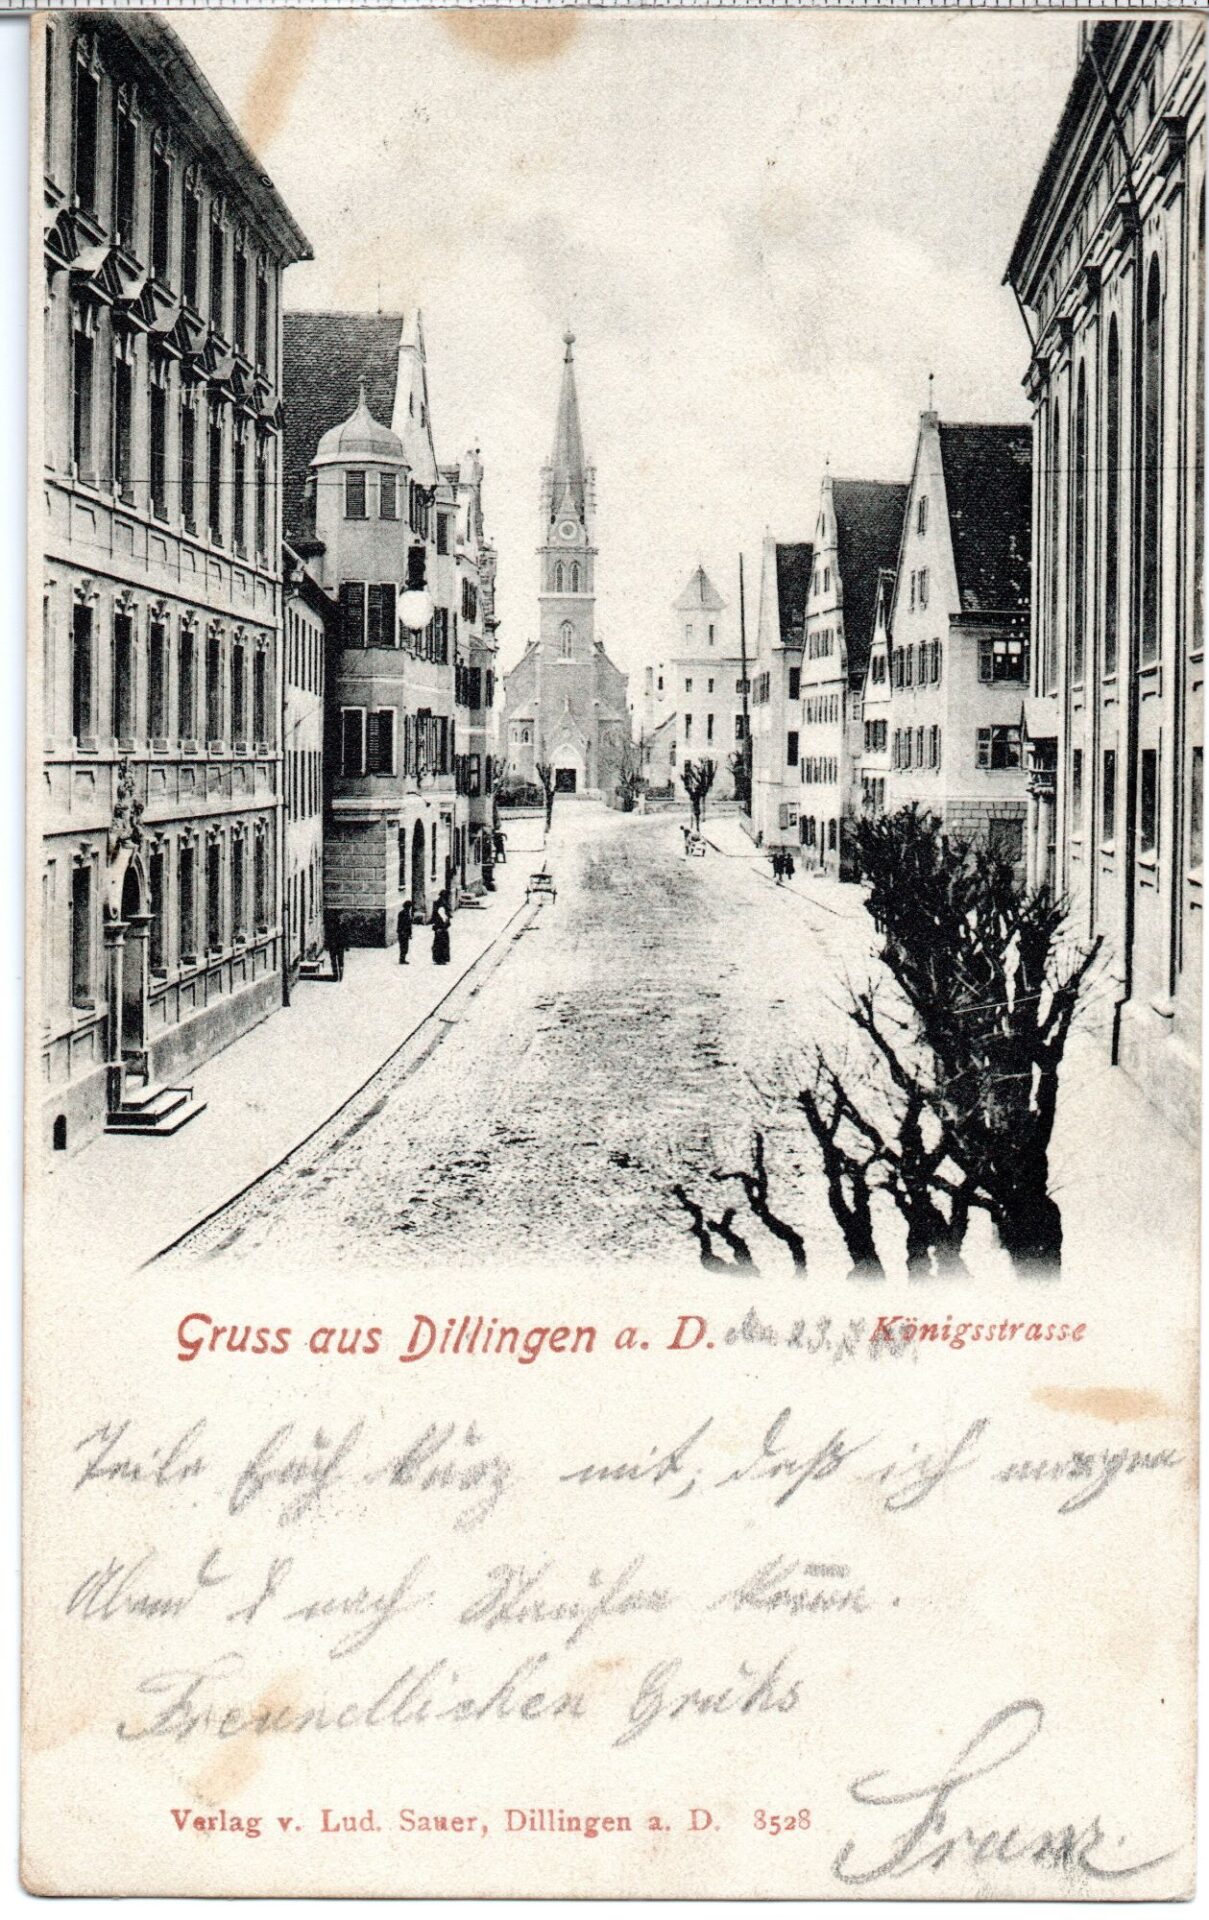 Gruss aus Dillingen a. D. den 23. Königsstrasse
Teile Euch kurz mit, daß ich morgen
Abend 8 nach Staufen komme.
Freundlichen Gruß
Franz.
Verlag v. Lud. Sauer, Dillingen a. D. 8528